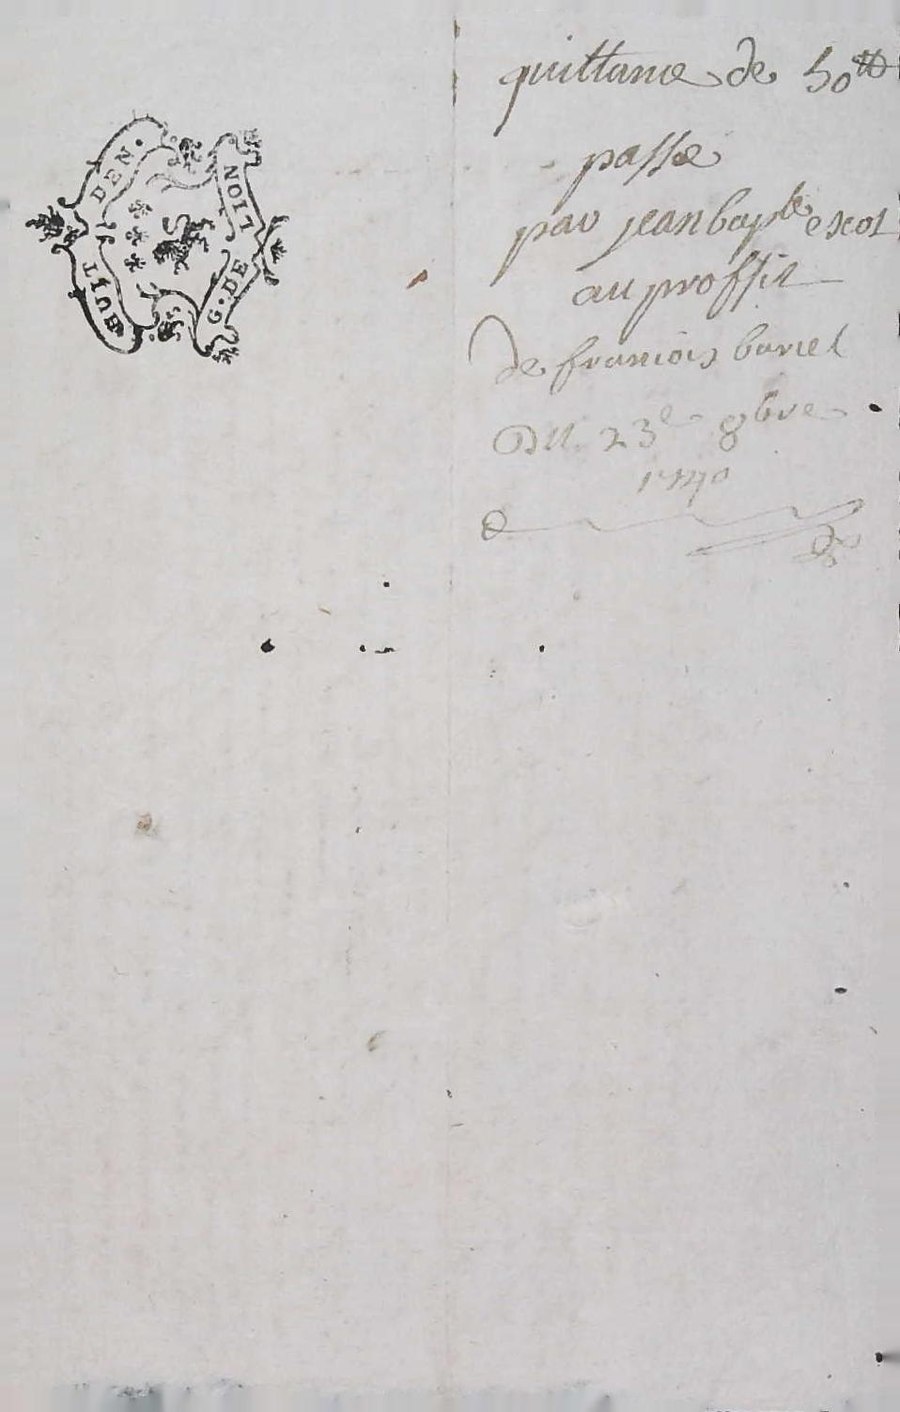 G. DE
LION
HUIT
DEN.
quittance de 50 tt
passée
par jean bapte escot
au proffit
de francois
Du 23e 8bre